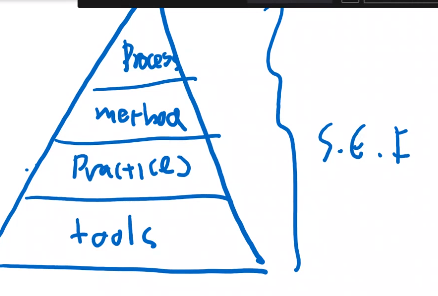 Process
method
Practices
tools
S.E.I